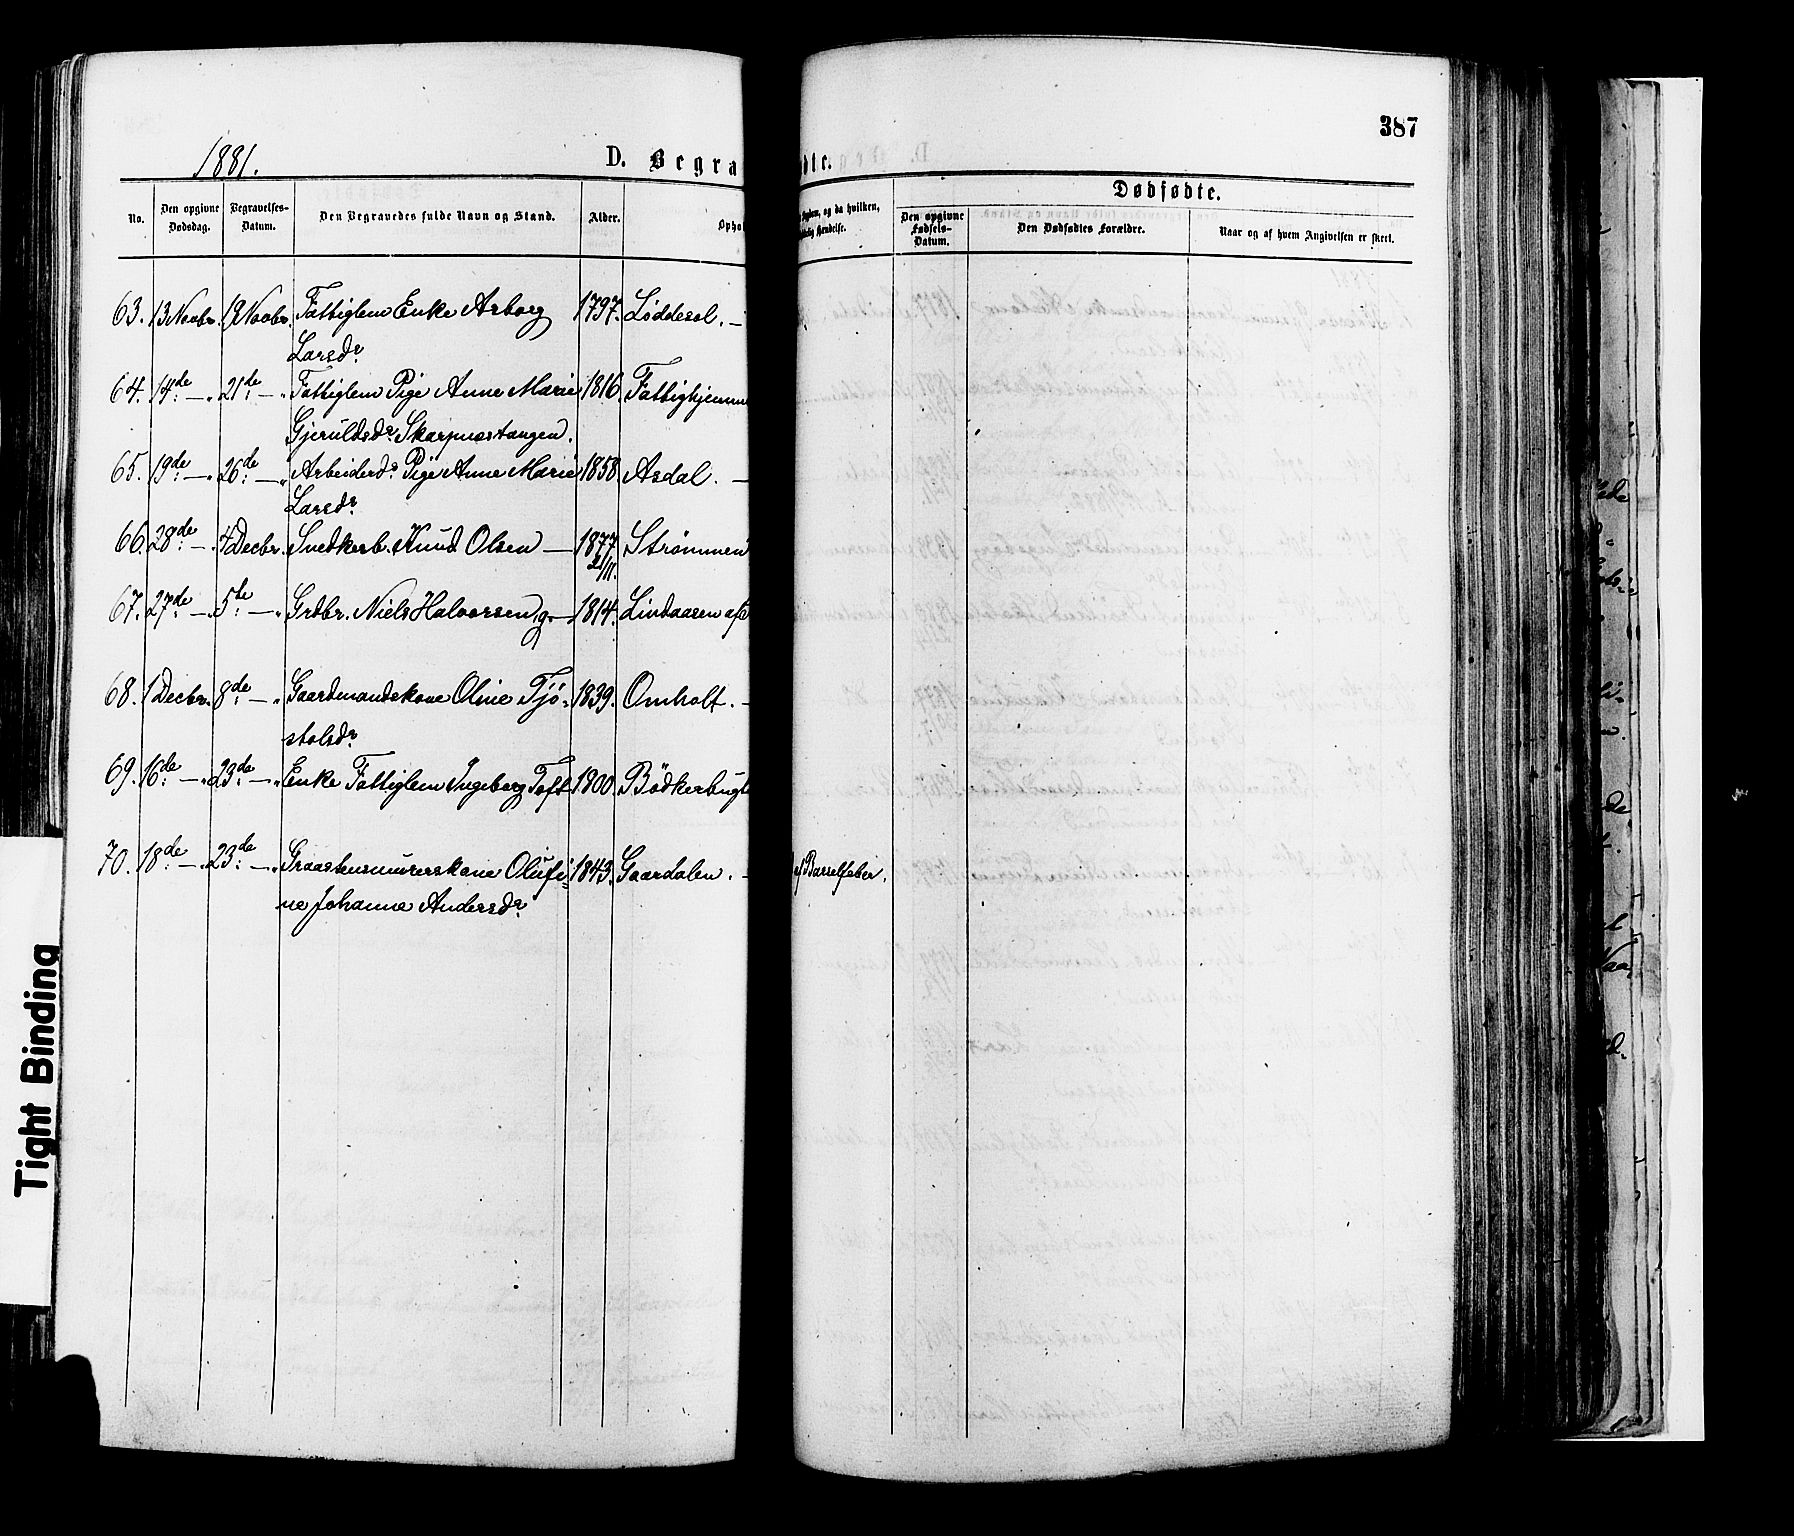 387
1881.
D. Begra
dte.
Dødfødte.
No.
Den opgivne Dødsdag.
Begravelses-Datum.
Den Begravedes fulde Navn og Stand.
Alder.
Ophol
Sygdom, og da hvilken,
Hændelse.
Den opgivne Fødsels-Datum.
Den Dødfødtes Forældre.
Naar og af hvem Angivelsen er skeet.
63. 13 Novbr. 19 Novbr. Fattiglem Enke Asborg 1797. Løddesol. —
Larsdr
64. 14de — " 21de — " Fattiglem Pige Anne Marie 1816. Fattighjemm
Gjeruldsdr Skarpnæstangen.
65. 19de — " 26de — " Arbeiderds Pige Anne Marie 1858. Asdal. —
Larsdr
66. 28de — " 4 Decbr. Snedkerb. Knud Olsen — 1877 Strømmen
2/11.
67. 27de — " 5te — " Grdbr. Niels Halvorsen, g. — 1814. Lindaasen af
68. 1 Decbr. 8de — " Gaardmandskone Oline Tjø- 1839. Omholt. —
stolsdr
69. 16de — " 23de — " Enke Fattiglem Ingeborg Toft 1800. Bødkerbugt
70. 18de — " 23de — " Graastensmurerskone Olufi- 1843. Gaardalen. — af Barselfeber.
ne Johanne Andersdr
Tight Binding